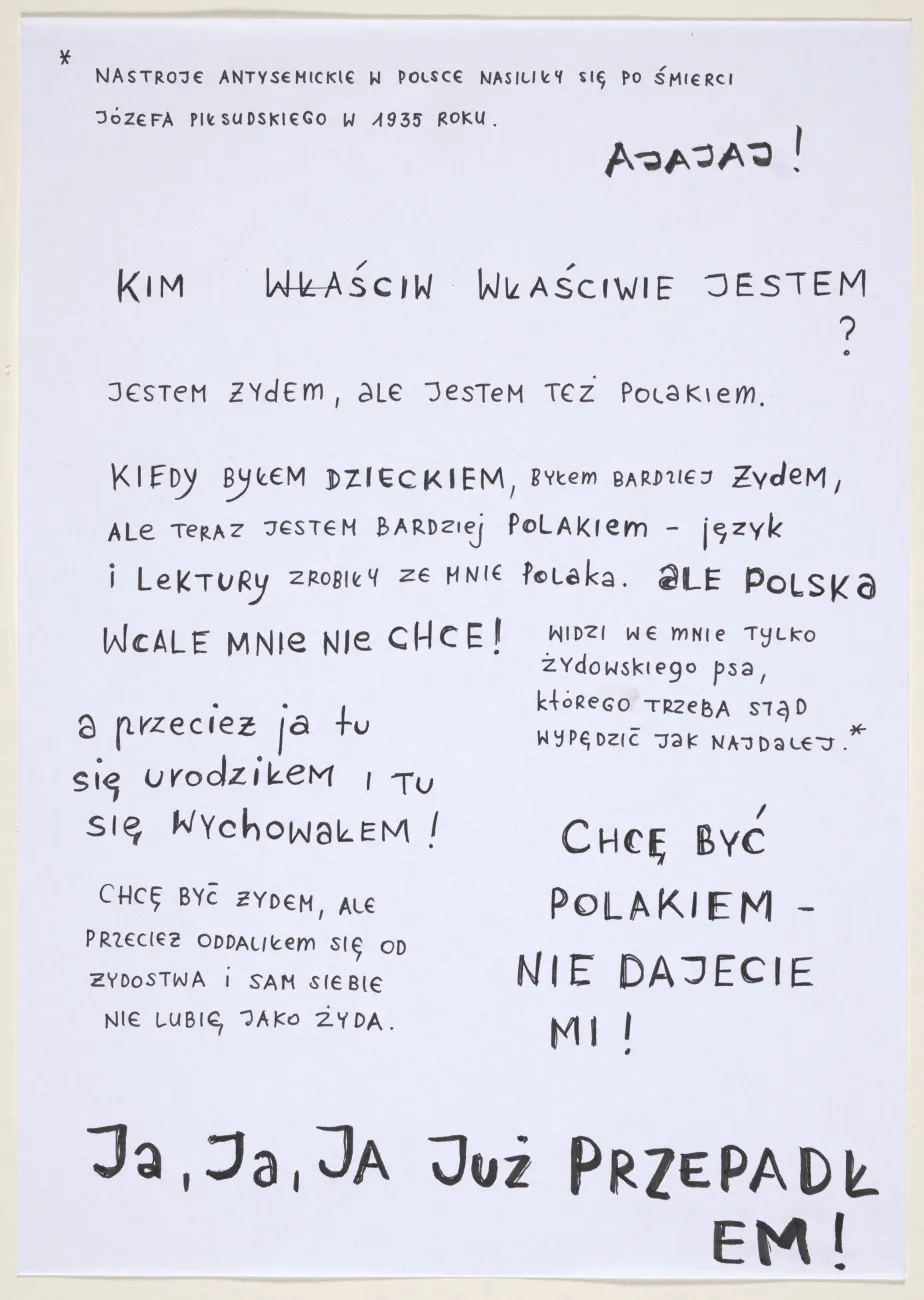 *
NASTROJE ANTYSEMICKIE W POLSCE NASILIŁY SIĘ PO ŚMIERCI
JÓZEFA PIŁSUDSKIEGO W 1935 ROKU.
AJAJAJ!
KIM WŁAŚCIW WŁAŚCIWIE JESTEM
?
JESTEM ŻYdEm, aLE JesTeM TEŻ PoLaKiem.
KIEDY BYŁEM DZIECKIEM, BYŁem BARDZIEJ ŻYdeM,
ALe TeRAZ JESTEM BARDZiej POLAKIem - język
i LeKTURy ZROBIŁY ZE MNIE PoLaka. aLE POLSKa
WCALE MNIe NIe CHCE!
WIDZI WE mNIE TYLKO
żYdowskIego psa,
któReGO TRZeBA STąD
WYPĘDZIĆ JaK NAJDaLEJ.*
a przecież ja tu
się urodziłeM I TU
sIę WYchoWaŁEM!
CHCĘ BYĆ ŻYDEM, ALE
PRZECIEŻ ODDALIŁem SIĘ OD
ŻYDOSTWA i SAM SIEBIE
NIE LUBIĘ JAKO ŻYDA.
CHCĘ BYĆ
POLAKIEM -
NIE DAJECIE
MI!
Ja, Ja, JA JUż PRZEPADŁ
EM!